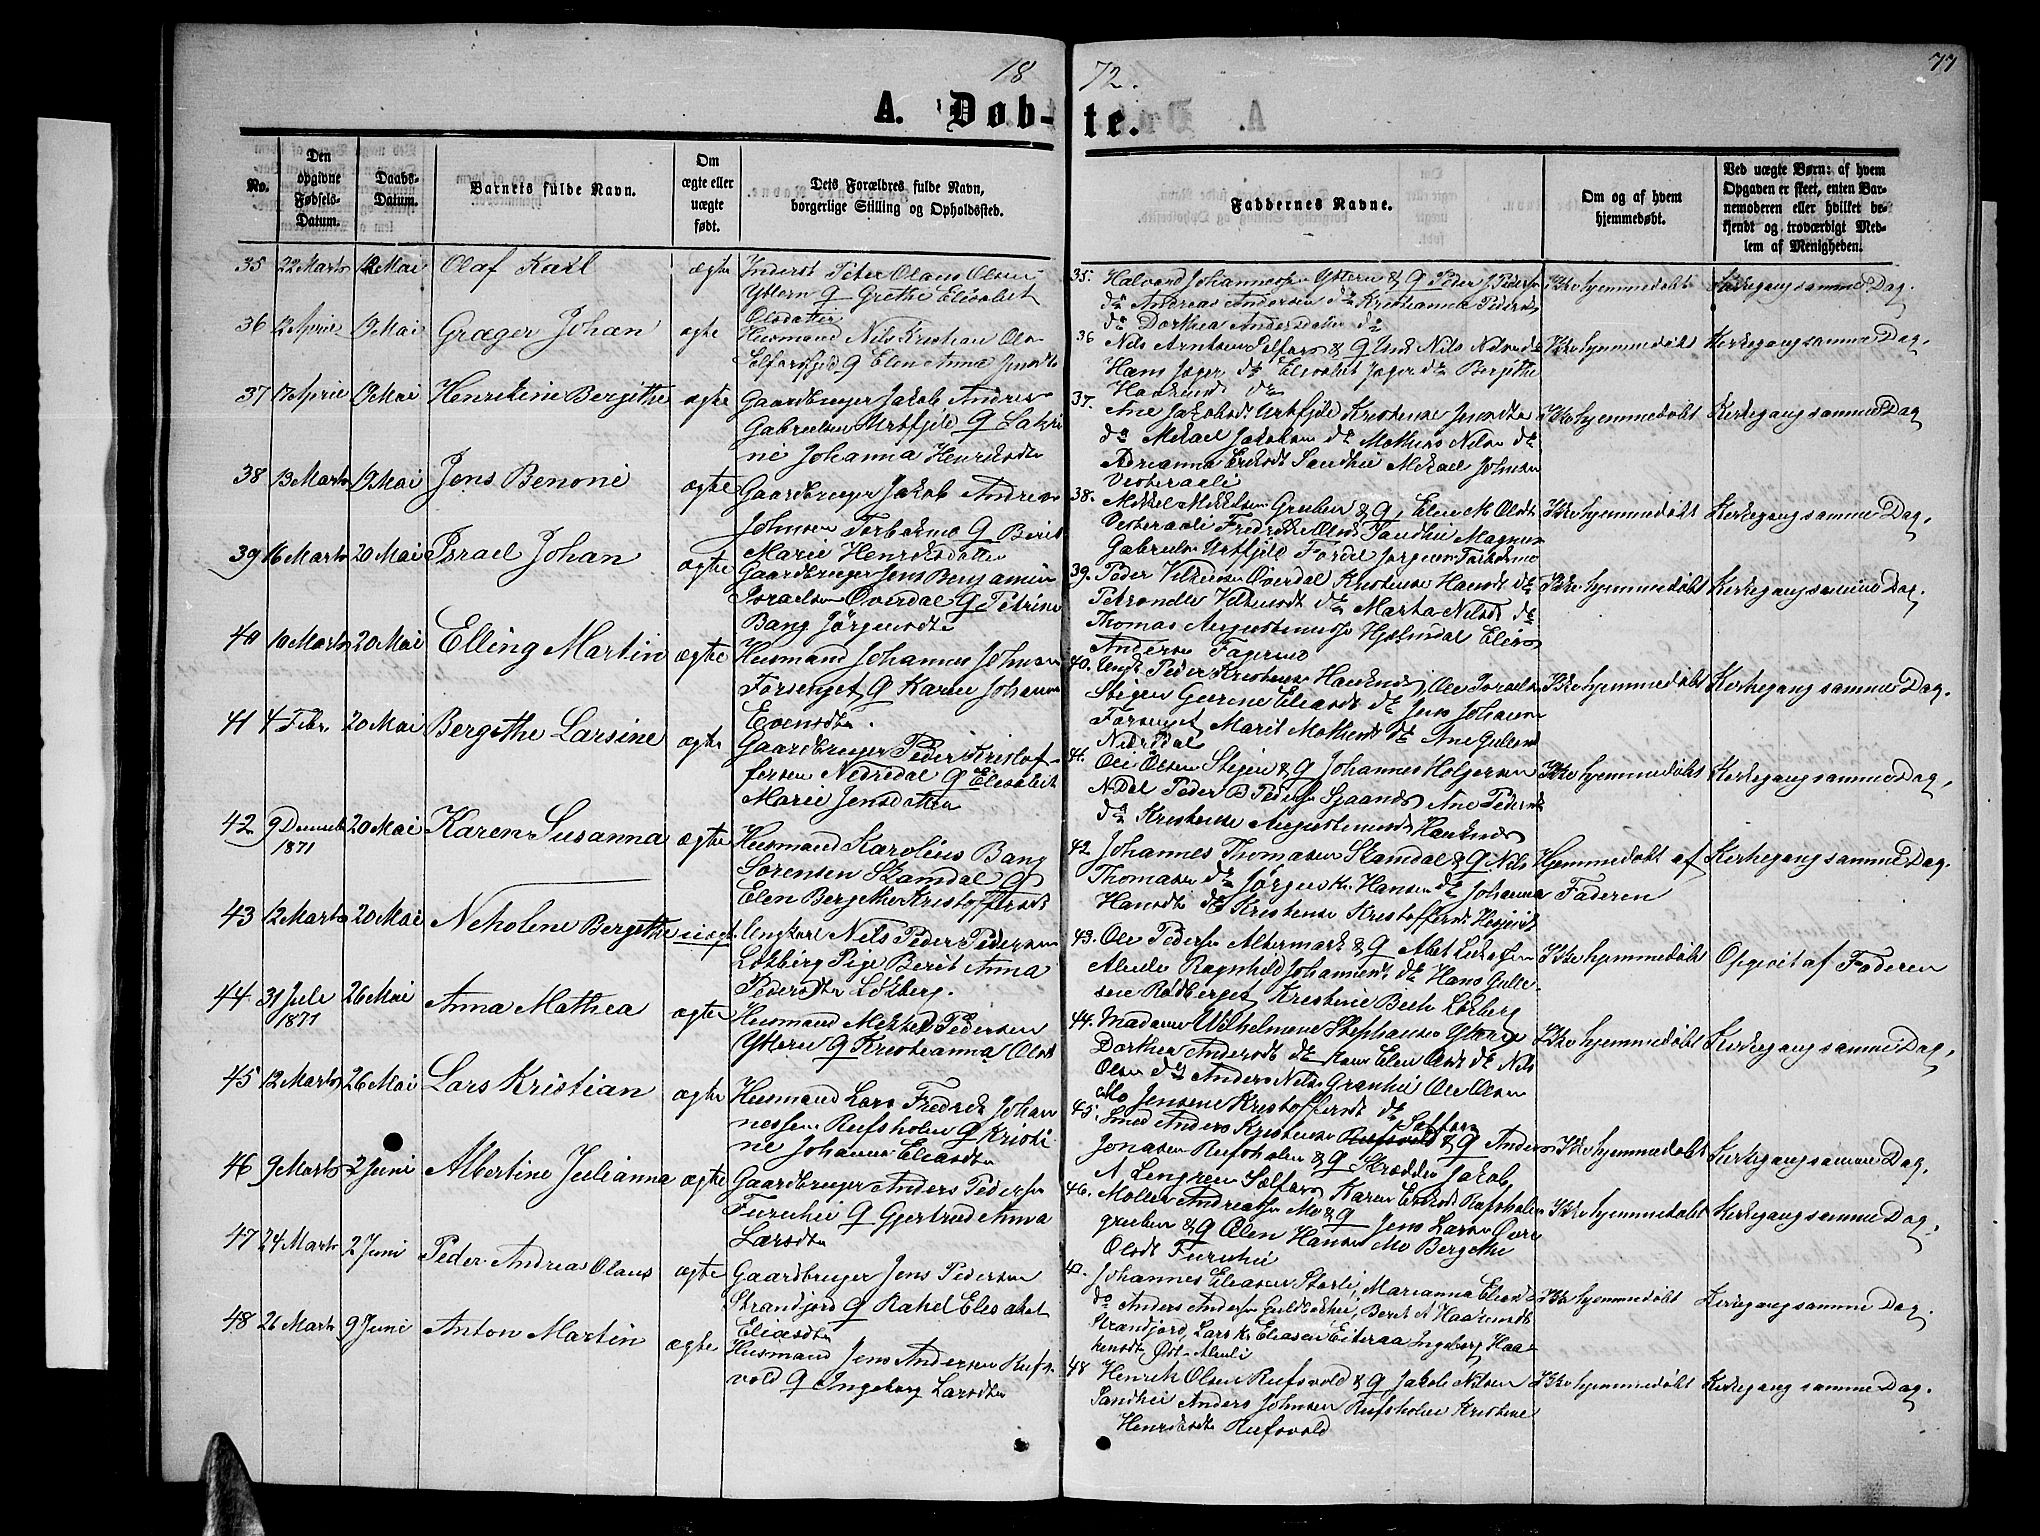 1872.
77
A. Døbte.
No.
Den opgivne Fødsels-Datum.
Daabs-Datum.
Barnets fulde Navn.
Om ægte eller uægte født.
Dets Forældres fulde Navn, borgerlige Stilling og Opholdssted.
Faddernes Navne.
Om og af hvem hjemmedøbt.
Ved uægte Børn: af hvem Opgaven er skeet, enten Barnemoderen eller hvilket bekjendt og troværdigt Medlem af Menigheden.
35 22 Marts Mai Olaf Karl ægte Inderst Peter Olaus Olsen
Yttern & Grethe Elisabet
Olsdatter
35. Halvord Johannessen Yttern & Q Peder
do Andreas Andersen do Kristianna Pedersd
do Dorthea Andersdatter do
Ikke hjemmedøbt Kirkegang samme Dag.
36 2 April 19 Mai Græger Johan ægte Husmand Nils Kristian Ols
Elfarsfjeld Q Elen Anna
36 Nils Arntsen Selfors & Q
Hans Jæger do Elisabet Jæger do Bergitte
Haakensd do
Ikke hjemmedøbt Kirkegang samme Dag.
37 17 April 19 Mai Henrikine Bergithe ægte Gaardbruger Jakob Andreas
Gabrielsen Urtfjeld Q Sakri
ne Johanna Henriksdtr
37. Ane Jakobsdt Urtfjeld Kristense
do Mikael Jakobsen do Mathias Nilsen do
Adrianna Eriksdt Sandhei Mikael Johnsen
Vesteraali
Ikke hjemmedøbt Kirkegang samme Dag
38 13 Marts 19 Mai Jens Benoni ægte Gaardbruger Jakob Andreas
Johnsen Torbækmo Q Berit
Marie Henriksdatter
38. Mikkel Mikkelsen Gruben & Q, Elen M Olsdt
Vesteraali Fredrikke Olsdt Sandhei Magnus
Gabrielsen Urtfjeld Fordel Jørgensen Torbækmo
Ikke hjemmedøbt Kirkegang samme Dag.
39 16 Marts 20 Mai Israel Johan ægte Gaardbruger Jens Benjamin
Israelsen Överdal Q Petrine
Bang Jörgensdtr
39. Peder Överdal Kristense Hansdt do
Petronelle do Marta Nilsdt do
Thomas Augustinussen Hjelmdal Elias
Andersen Fagermo
Ikke hjemmedøbt Kirkegang samme Dag.
40 10 Marts 20 Mai Elling Martin ægte Husmand Johannes Johnsen
Forsenget Q Karen Johanna
Evensdtr.
40. Ungk. Peder Kristensen Hauknes, Ole Israelsen
Stigen Gurine Eliasdt do Jens Johansen
Forsenget Marit Mathisdt do Ane Gullesd
Nedredal
Ikke hjemmedøbt Kirkegang samme Dag.
41 4 Febr. 20 Mai Bergithe Larsine ægte Gaardbruger Peder Kristof-
fersen Nedredal Q Elisabet
Marie Jensdatter
41. Ole Olsen Stigen & Q Johannes Holgersen
N.Dal Peder B Pedersen Sjaanes Ane Pedersd
do Kristense Augustinusdt Hauknes
Ikke hjemmedøbt Kirkegang samme Dag.
42 9 Decemb 1871 20 Mai Karen Susanna ægte Husmand Karolius Bang
Sörensen Skamdal Q
Elen Bergithe Kristoffersdt
42 Johannes Thomasen Skamdal & Q Nils
Thomasen do Jörgen Kr. Hansen do Johanna
Hansdt do Kristense Kristoffersdt
Hjemmedøbt af Faderen Kirkegang samme Dag.
43 12 Marts 20 Mai Neholene Bergithe uægt. Ungkarl Nils Peder Pedersen
Lökberg Pige Berit Anna
Pedersdtr Lökberg.
43. Ole Pedersen Altermark & Q Abel
Alulie Ragnhild Johannesdt do Hans Gulle-
sen Rödberget Kristine Lökberg
Ikke hjemmedøbt Opgivet af Faderen
44 31 Juli 1871 26 Mai Anna Mathea ægte Husmand Mekkel Pedersen
Ytteren Q Kristianna Olsdt
44. Madame Wilhelmine Stephansen
Dorthea Andersdt do Elen Olsdt do Nils
Olsen do Anders Nilsen Granhei Ole Olsen
Mo Jensine Kristoffersdt do
Ikke hjemmedøbt Kirkegang samme Dag.
45 12 Marts 26 Mai Lars Kristian ægte Husmand Lars Fredrik Johan
nessen Rufsholm Q Kristi
ne Johanna Eliasdtr
45. Smed Anders Kristensen Selfors & Q Anders
Jonasen Rufsholm & Q Skrædder Jakob
A Lengren Selfors Karen Eriksdt Rufsholm
Ikke hjemmedøbt Kirkegang samme Dag.
46 9 Marts 2 Juni Albertine Julianna ægte Gaardbruger Anders Pedersen
Furuhei Q Gjertrud Anna
Larsdtr
46. Møller Andreassen Mo & Q Jens Larsen Övre
gruben & Q Elen Hansen Mo Bergithe
Olsdt Furuhei
Ikke hjemmedøbt Kirkegang samme Dag.
47 24 Marts 2 Juni Peder Andreas Olaus ægte Gaardbruger Jens Pedersen
Strandjord Q Rakel Elisabet
Eliasdtr
47. Johannes Eliasen Storli, Marianna Eliasd
do Anders Andersen Guldbakhei, Berit A Haakensdt
Strandjord, Lars Kr. Eliasen Eiteraa Ingeborg Haa-
kensdt, Öst-Aluli
Ikke hjemmedøbt Kirkegang samme Dag.
48 26 Marts 9 Juni Anton Martin ægte Husmand Jens Andersen Rufs-
vold Q Ingeborg Larsdtr
48 Henrik Olsen Rufsvold & Q Jakob Nilsen
Sandhei Anders Johnsen Rufsholm Kristine
Henriksdtr Rufsvold
Ikke hjemmedøbt Kirkegang samme Dag.